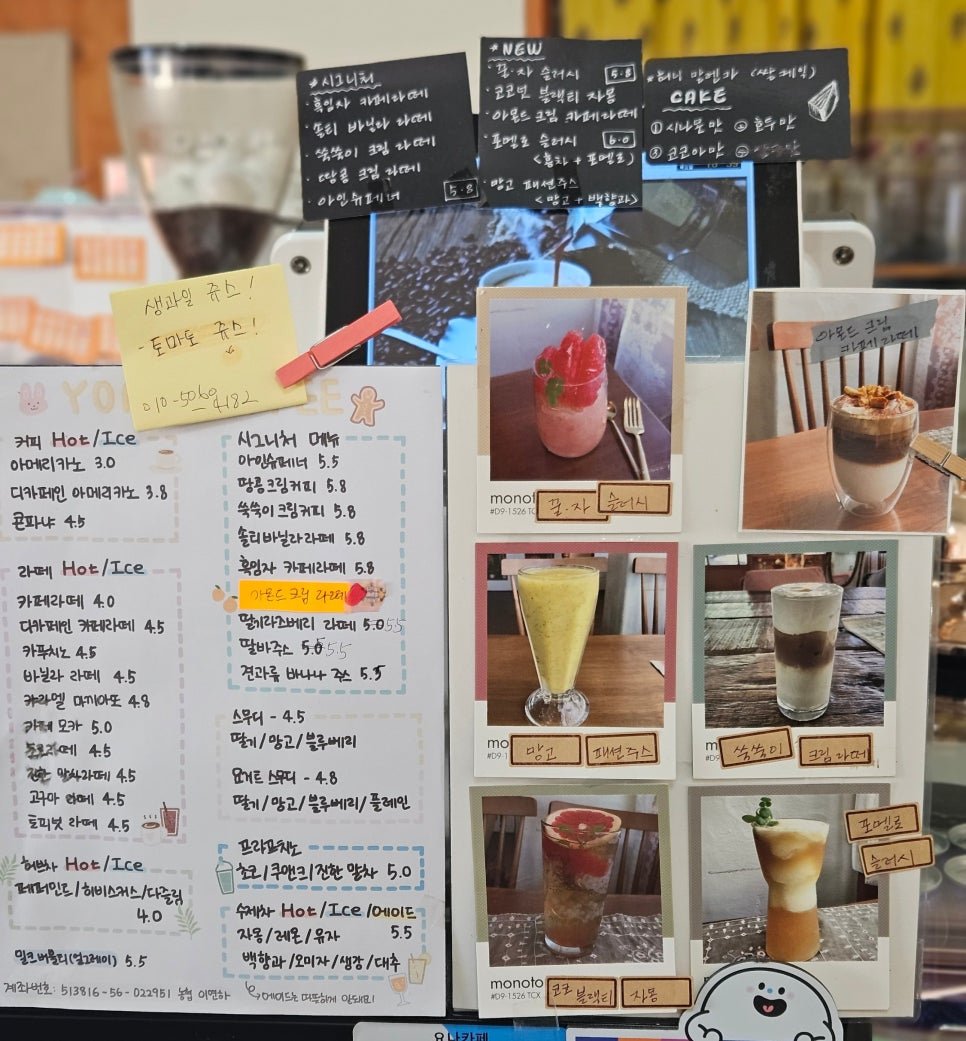 *시그니처
·흑임자 카페라떼
·솔티 바닐라 라떼
·쑥쑥이 크림 라떼
·땅콩 크림 라떼
·아인슈페너 5.8
*NEW
·꿀·자 슬러시 5.8
·코코넛 블랙티 자몽
·아몬드 크림 카페라떼
·포멜로 슬러시 6.0
<홍차 + 포멜로>
·망고 패션주스
<망고 + 백향과>
CAKE
① 시나몬맛 ② 호두맛
③ 코코아맛
생과일 쥬스!
- 토마토 쥬스!
커피 Hot/Ice
아메리카노 3.0
디카페인 아메리카노 3.8
콘파냐 4.5
라떼 Hot/Ice
카페라떼 4.0
디카페인 카페라떼 4.5
카푸치노 4.5
바닐라 라떼 4.5
캬라멜 마끼아또 4.8
카페 모카 5.0
4.5
진한 말차라떼 4.5
고구마 라떼 4.5
토피넛 라떼 4.5
허브차 Hot/Ice
페퍼민트/히비스커스/다즐링
4.0
밀크버블티(얼그레이) 5.5
계좌번호: 513816-56-022951 농협 이연하
시그니처 메뉴
아인슈페너 5.5
땅콩크림커피 5.8
쑥쑥이크림커피 5.8
솔티바닐라라떼 5.8
흑임자 카페라떼 5.8
아몬드 크림 라떼
딸기라즈베리 라떼 5.0 5.5
딸바주스 5.0 5.5
견과류 바나나 주스 5.5
스무디 - 4.5
딸기/망고/블루베리
요거트 스무디 - 4.8
딸기/망고/블루베리/플레인
프라프치노
초코/쿠앤크/진한 말차 5.0
수제차 Hot/Ice/에이드
자몽/레몬/유자 5.5
백향과/오미자/생강/대추
에이드는 따뜻하게 안돼요!
monoto
#D9-1526 TC
꿀·자 슬러시
아몬드 크림
카페 라떼
mo
#D9-1
망고 패션주스
m
#D9
쑥쑥이 크림라떼
monoto
#D9-1526 TCX
코코 블랙티 자몽
포멜로
슬러시
요나카페